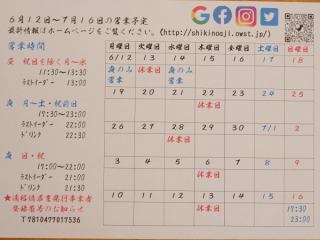 6月12日~7月16日の営業予定
最新情報はホームページをご覧ください。(http://shikinoaji.owst.jp/)
営業時間
昼 祝日を除く月~水
11:30~13:30
ラストイーダー 13:00
夜 月~土・祝前日
17:00~23:00
ラストイーダー 22:00
ドリンク 22:30
夜 日・祝
17:00~22:00
ラストイーダー 21:00
ドリンク 21:30
★適格請求書発行事業者
登録番号のお知らせ
T7810477017536
月曜日 火曜日 水曜日 木曜日 金曜日 土曜日 日曜日
6/12 13 14 15 16 17 18
昼のみ営業 休業日 昼のみ営業
19 20 21 22 23 24 25
休業日
26 27 28 29 30 7/1 2
休業日
3 4 5 6 7 8 9
休業日
10 11 12 13 14 15 16
休業日 17:30
23:00